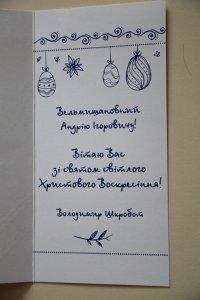 Вельмишановний
Андрію Ігоровичу!
Вітаю Вас
зі святом світлого
Христового Воскресіння!
Володимир Шкробот